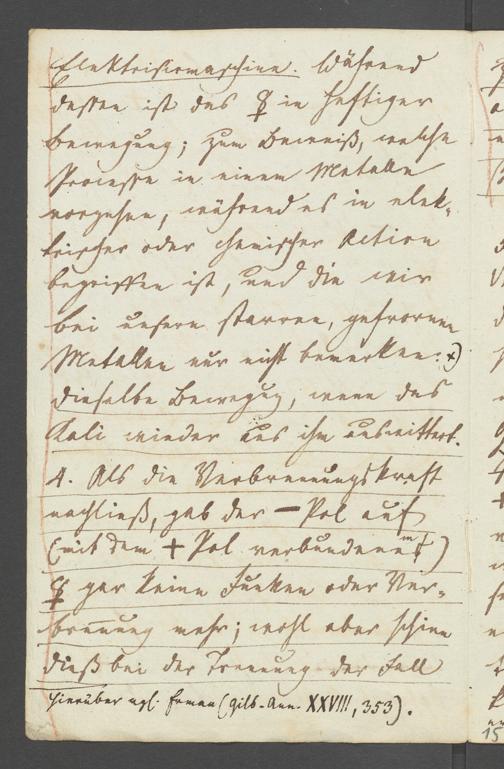 Elektrisirmaschine. Während
dessen ist das ☿ in heftiger
Bewegung; zum Beweiß, welche
Processe in einem Metalle
vorgehen, während es in elek-
trischer oder chemischer Action
begriffen ist, und die wir
bei unsern starren, gefrornen
Metallen nur nicht bemerken. x)
Dieselbe Bewegung, wenn das
Kali wieder aus ihm auswittert.
4. Als die Verbrennungskraft
nachließ, gab der – Pol auf
(mit dem + Pol verbundenem)
☿ gar keine Funken oder Ver-
brennung mehr; wohl aber schien
dieß bei der Trennung der Fall
Hierüber vgl. Erman (Gilb. Ann. XXVIII, 353).
15